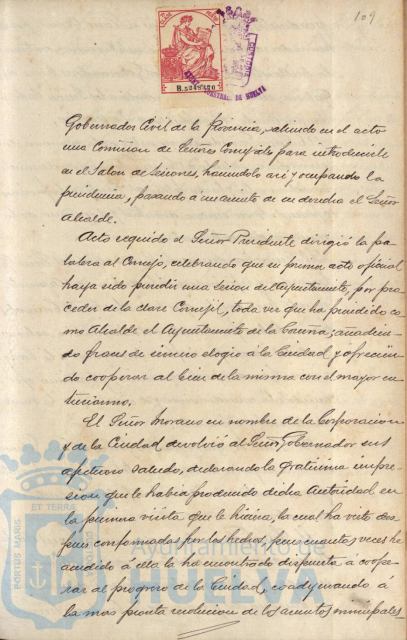 109
B.5,248,420
AYUNTAMIENTO
Gobernador Civil de la Provincia, saliendo en el acto
una Comisión de Señores Concejales para introducirle
en el Salón de Sesiones, haciéndolo así y ocupando la
presidencia, pasando a su derecha el Señor
Alcalde.
Acto seguido el Señor Presidente dirigió la pa-
labra al Concejo, celebrando que su primer acto oficial
haya sido presidir una Sesión del Ayuntamiento, por pro-
ceder de la clase Concejil, toda vez que ha presidido co-
mo Alcalde el Ayuntamiento de la Coruña; añadien-
do frases de sincero elogio á la Ciudad y ofrecien-
do cooperar al bien de la misma con el mayor en-
tusiasmo.
El Señor Morano en nombre de la Corporacion
y de la Ciudad devolvió al Señor Gobernador su
afectuoso saludo, declarando la gratísima impre-
sion que le habia producido dicha Autoridad en
la primera visita que le hiciera, la cual ha visto des-
pues confirmadas por los hechos, pues cuantas veces ha
acudido á ella la ha encontrado dispuesta á coope-
rar al progreso de la Ciudad, coadyuvando á
la mas pronta resolucion de los asuntos municipales
PORTUS MARIS
ET TERRÆ
Ayuntamiento de
HUELVA